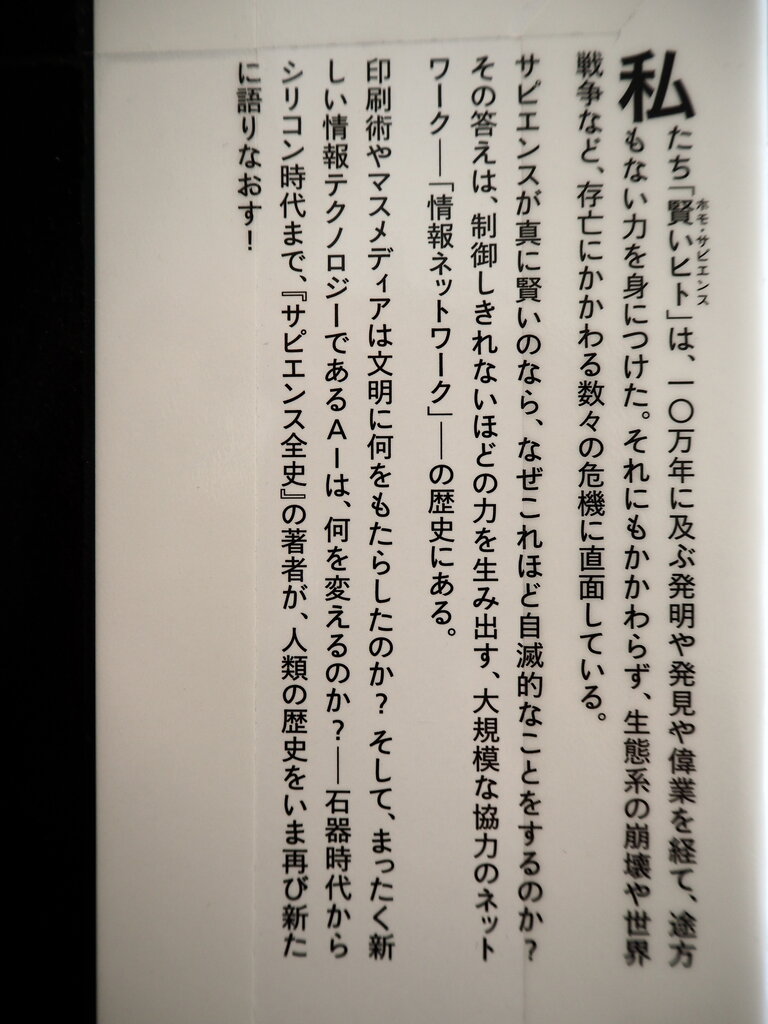 私たち「賢いヒト」は、一〇万年に及ぶ発明や発見や偉業を経て、途方
ホモ・サピエンス
もない力を身につけた。それにもかかわらず、生態系の崩壊や世界
戦争など、存亡にかかわる数々の危機に直面している。
サピエンスが真に賢いのなら、なぜこれほど自滅的なことをするのか?
その答えは、制御しきれないほどの力を生み出す、大規模な協力のネット
ワーク―「情報ネットワーク」―の歴史にある。
印刷術やマスメディアは文明に何をもたらしたのか? そして、まったく新
しい情報テクノロジーであるAIは、何を変えるのか?―石器時代から
シリコン時代まで、『サピエンス全史』の著者が、人類の歴史をいま再び新た
に語りなおす!